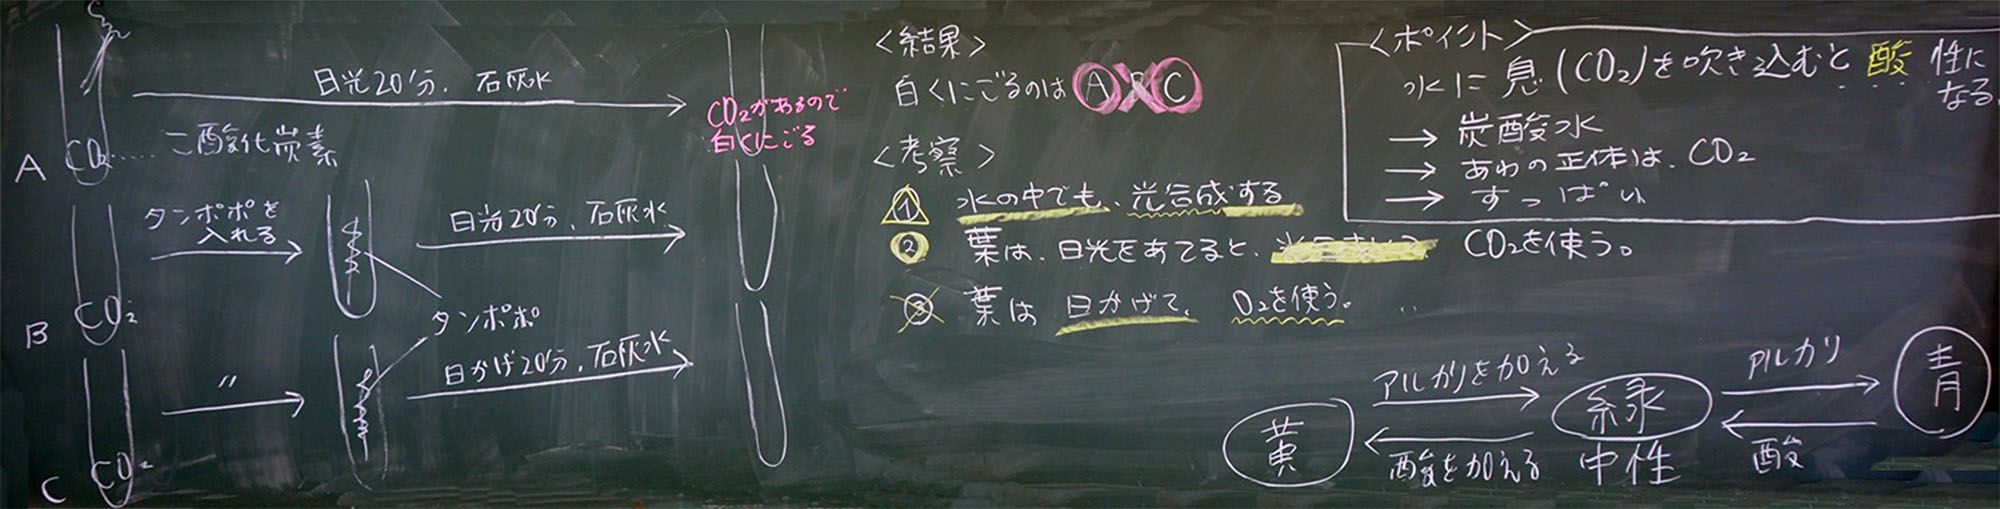 日光20分、石灰水
CO₂……二酸化炭素
A
CO₂があるので
白くにごる
タンポポを
入れる
日光20分、石灰水
CO₂
B
タンポポ
〃
日かげ20分、石灰水
CO₂
C
<結果>
白くにごるのは A B C
<考察>
① 水の中でも、光合成する
② 葉は、日光をあてると、 CO₂を使う。
③ 葉は 日かげで、 O₂を使う。
<ポイント>
水に息(CO₂)を吹き込むと 酸 性に
なる。
→ 炭酸水
→ あわの正体は、CO₂
→ すっぱい
黄
アルカリを加える
酸を加える
緑
中性
アルカリ
酸
青